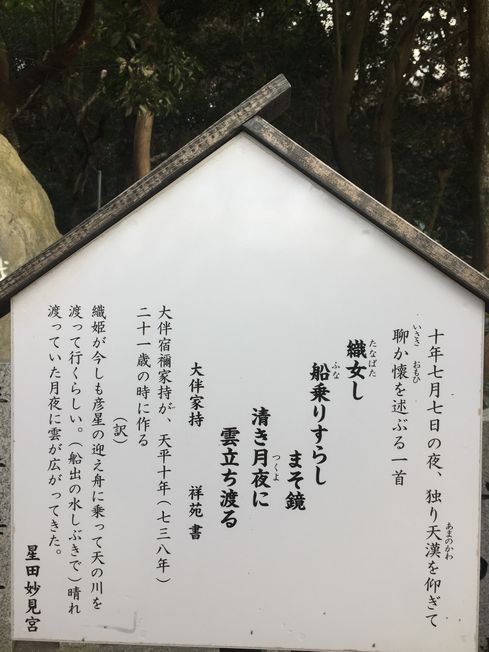 十年七月七日の夜、独り天漢を仰ぎて
あまのかわ
聊か懐を述ぶる一首
いささ おもひ
織女し
たなばた
船乗りすらし
ふな
まそ鏡
清き月夜に
つくよ
雲立ち渡る
大伴家持 祥苑 書
大伴宿禰家持が、天平十年(七三八年)
二十一歳の時に作る
(訳)
織姫が今しも彦星の迎え舟に乗って天の川を
渡って行くらしい。(船出の水しぶきで)晴れ
渡っていた月夜に雲が広がってきた。
星田妙見宮